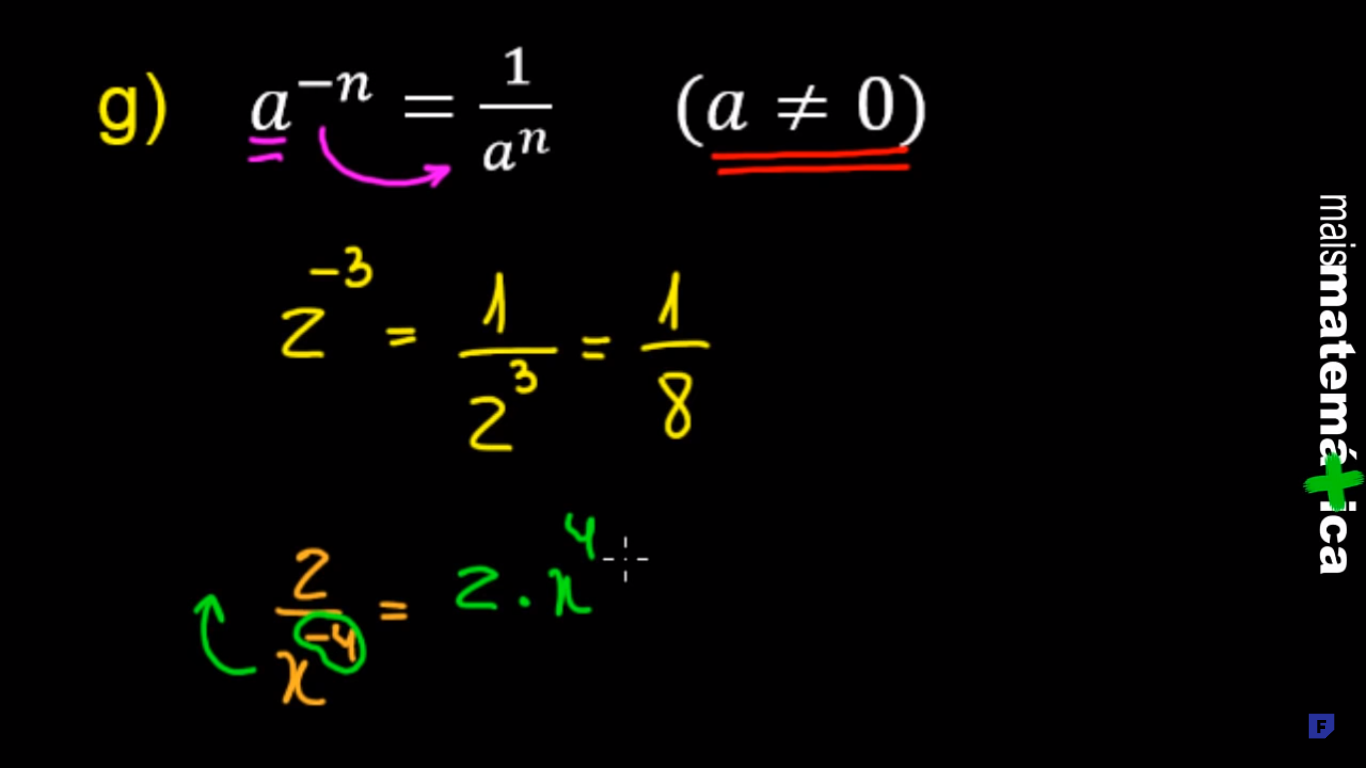 g) a⁻ⁿ = 1/aⁿ (a ≠ 0)
2⁻³ = 1/2³ = 1/8
2/x⁻⁴ = 2 . x⁴
maismatemática
F